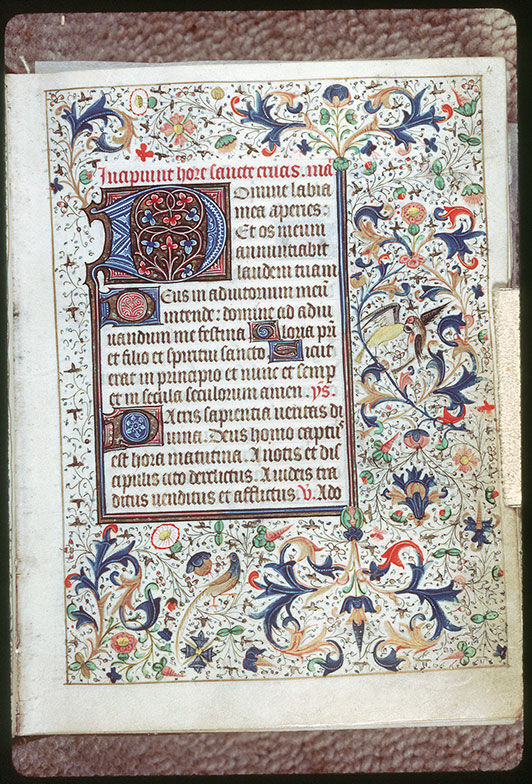 Incipiunt hore sancte crucis. ma
Domine labia
mea aperies:
Et os meum
annunciabit
laudem tuam
Deus in adiutorium meū
intende: domine ad adiu
uandum me festina Gloria pri
et filio et spiritui sancto Sicut
erat in principio et nunc et semp
et in secula seculorum amen. ys
Patris sapientia ueritas di
uina. Deus homo captus
est hora matutina. A notis et dis
cipulis cito derelictus. A iudeis tra
ditus uenditus et afflictus V. Ado